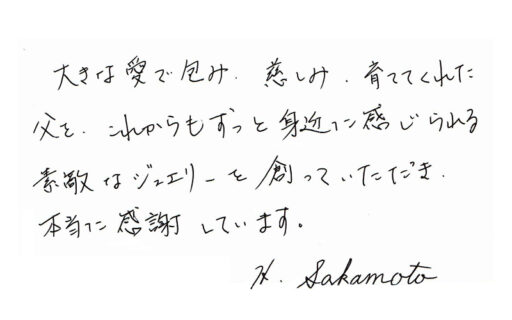 大きな愛で包み、慈しみ、育ててくれた
父を、これからもずっと身近に感じられる
素敵なジュエリーを創っていただき、
本当に感謝しています。
H. Sakamoto